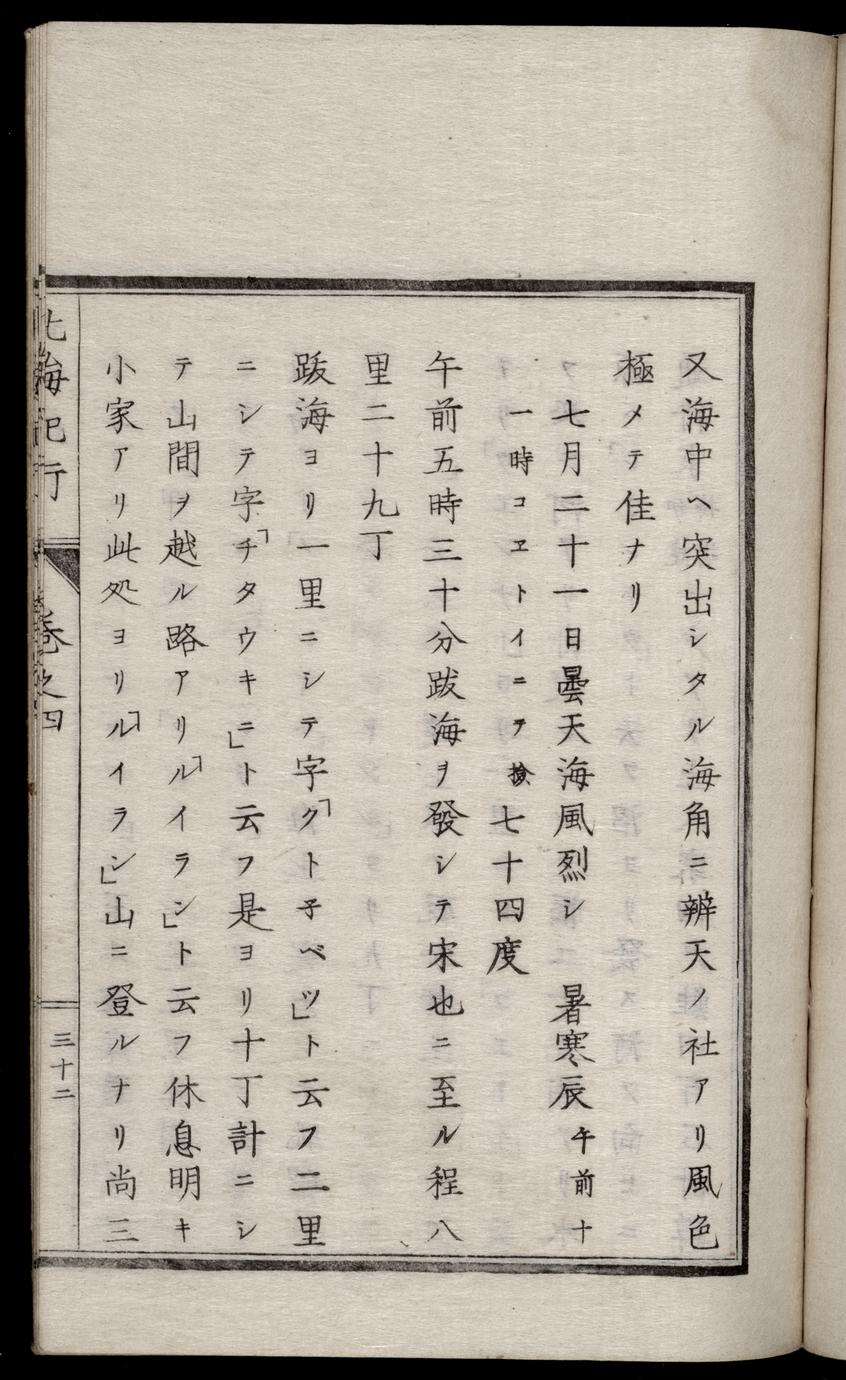 又海中ヘ突出シタル海角ニ辨天ノ社アリ風色
極メテ佳ナリ
七月二十一日曇天海風烈シ　暑寒辰午前十
一時コヱトイニテ撿七十四度
午前五時三十分跋海ヲ發シテ宋也ニ至ル程八
里二十九丁
跋海ヨリ一里ニシテ字「クト子ベツ」ト云フ二里
ニシテ字「チタウキニ」ト云フ是ヨリ十丁計ニシ
テ山間ヲ越ル路アリ「ルイラン」ト云フ休息明キ
小家アリ此処ヨリ「ルイラン」山ニ登ルナリ尚三
北海紀行
巻之四
三十二